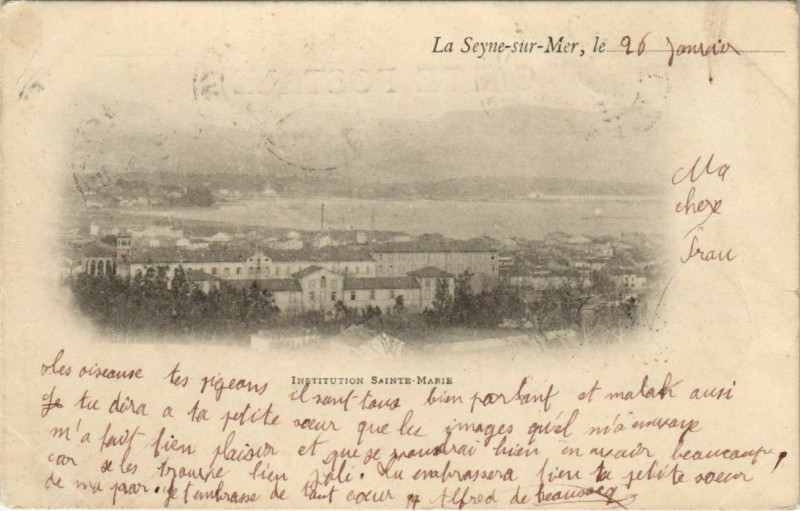 La Seyne-sur-Mer, le 26 Janvier
Ma
chere
Frau
Institution Sainte-Marie
les oiseause tes pigeons il vont tous bien portant et malak ausi
tu dira a ta petite sœur que les images qu'el m'a envoye
m'a fait bien plaisir et que je voudrai bien en avoir beaucoup,
car je les trouve bien joli. Tu enabrassera bien ta petite sœur
de ma par. je t'enbrasse de tout cœur Alfred de beausacq